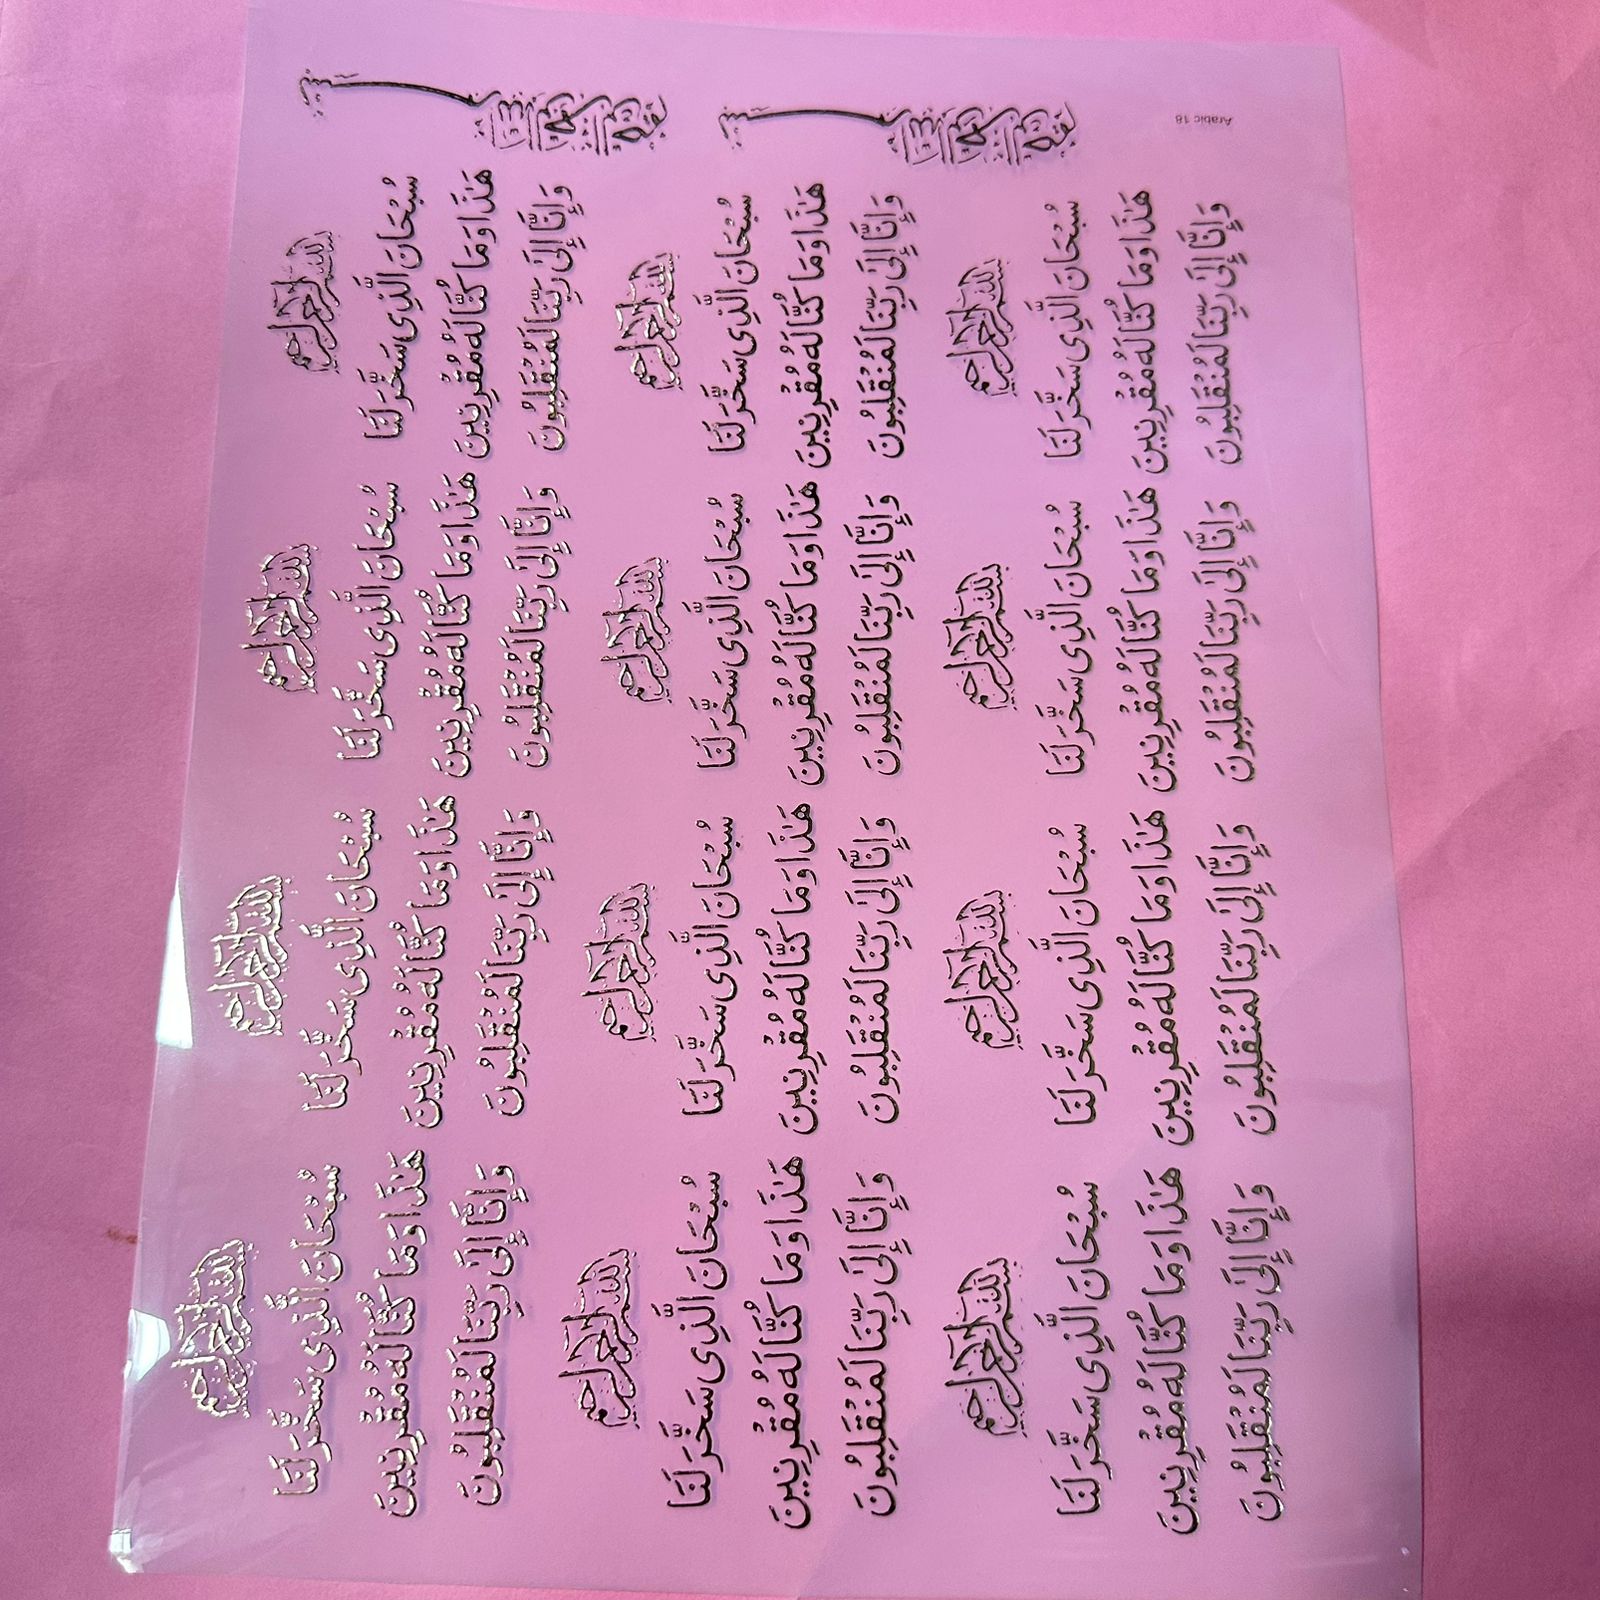 Arabic 18
بسم الله الرحمن الرحيم
سُبْحَانَ الَّذِى سَخَّرَ لَنَا
هَٰذَا وَمَا كُنَّا لَهُ مُقْرِنِينَ
وَإِنَّا إِلَىٰ رَبِّنَا لَمُنْقَلِبُونَ
بسم الله الرحمن الرحيم
سُبْحَانَ الَّذِى سَخَّرَ لَنَا
هَٰذَا وَمَا كُنَّا لَهُ مُقْرِنِينَ
وَإِنَّا إِلَىٰ رَبِّنَا لَمُنْقَلِبُونَ
بسم الله الرحمن الرحيم
سُبْحَانَ الَّذِى سَخَّرَ لَنَا
هَٰذَا وَمَا كُنَّا لَهُ مُقْرِنِينَ
وَإِنَّا إِلَىٰ رَبِّنَا لَمُنْقَلِبُونَ
بسم الله الرحمن الرحيم
سُبْحَانَ الَّذِى سَخَّرَ لَنَا
هَٰذَا وَمَا كُنَّا لَهُ مُقْرِنِينَ
وَإِنَّا إِلَىٰ رَبِّنَا لَمُنْقَلِبُونَ
بسم الله الرحمن الرحيم
سُبْحَانَ الَّذِى سَخَّرَ لَنَا
هَٰذَا وَمَا كُنَّا لَهُ مُقْرِنِينَ
وَإِنَّا إِلَىٰ رَبِّنَا لَمُنْقَلِبُونَ
بسم الله الرحمن الرحيم
سُبْحَانَ الَّذِى سَخَّرَ لَنَا
هَٰذَا وَمَا كُنَّا لَهُ مُقْرِنِينَ
وَإِنَّا إِلَىٰ رَبِّنَا لَمُنْقَلِبُونَ
بسم الله الرحمن الرحيم
سُبْحَانَ الَّذِى سَخَّرَ لَنَا
هَٰذَا وَمَا كُنَّا لَهُ مُقْرِنِينَ
وَإِنَّا إِلَىٰ رَبِّنَا لَمُنْقَلِبُونَ
بسم الله الرحمن الرحيم
سُبْحَانَ الَّذِى سَخَّرَ لَنَا
هَٰذَا وَمَا كُنَّا لَهُ مُقْرِنِينَ
وَإِنَّا إِلَىٰ رَبِّنَا لَمُنْقَلِبُونَ
بسم الله الرحمن الرحيم
سُبْحَانَ الَّذِى سَخَّرَ لَنَا
هَٰذَا وَمَا كُنَّا لَهُ مُقْرِنِينَ
وَإِنَّا إِلَىٰ رَبِّنَا لَمُنْقَلِبُونَ
بسم الله الرحمن الرحيم
سُبْحَانَ الَّذِى سَخَّرَ لَنَا
هَٰذَا وَمَا كُنَّا لَهُ مُقْرِنِينَ
وَإِنَّا إِلَىٰ رَبِّنَا لَمُنْقَلِبُونَ
بسم الله الرحمن الرحيم
سُبْحَانَ الَّذِى سَخَّرَ لَنَا
هَٰذَا وَمَا كُنَّا لَهُ مُقْرِنِينَ
وَإِنَّا إِلَىٰ رَبِّنَا لَمُنْقَلِبُونَ
بسم الله الرحمن الرحيم
سُبْحَانَ الَّذِى سَخَّرَ لَنَا
هَٰذَا وَمَا كُنَّا لَهُ مُقْرِنِينَ
وَإِنَّا إِلَىٰ رَبِّنَا لَمُنْقَلِبُونَ